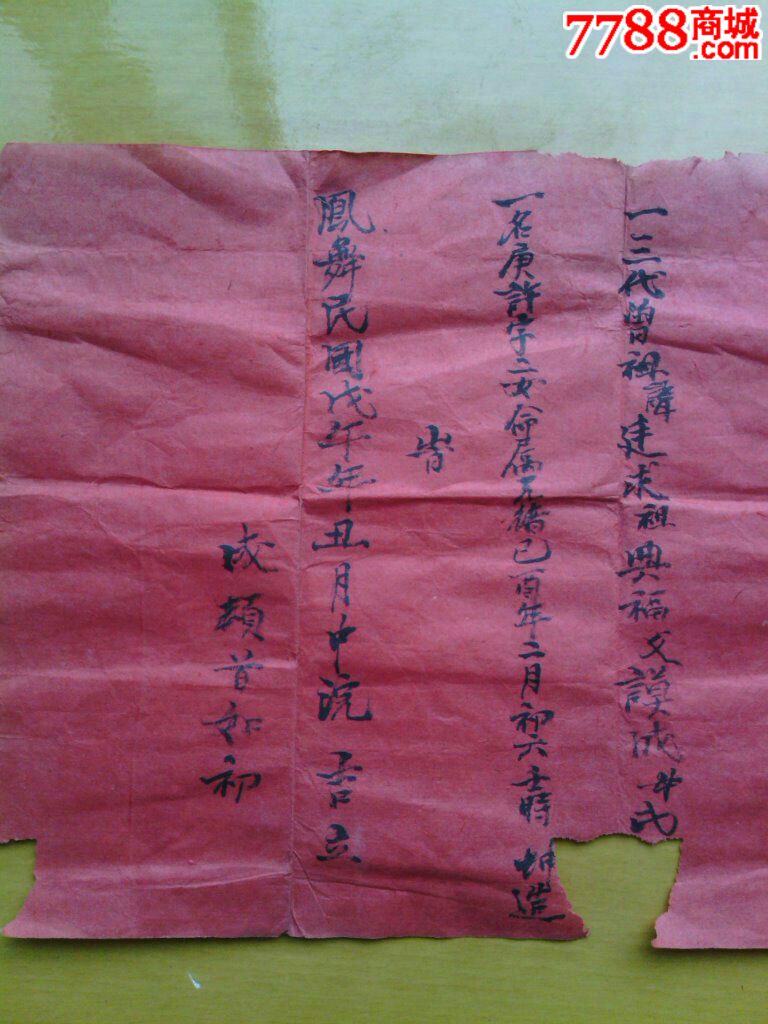 7788商城
.com
一三代曾祖諱廷求祖興福父謨成 氏
一名庚許字二女命属 己酉年二月初六 時 坤造
鳳舞民國戊午年丑月中浣 吉立
成頓首如初